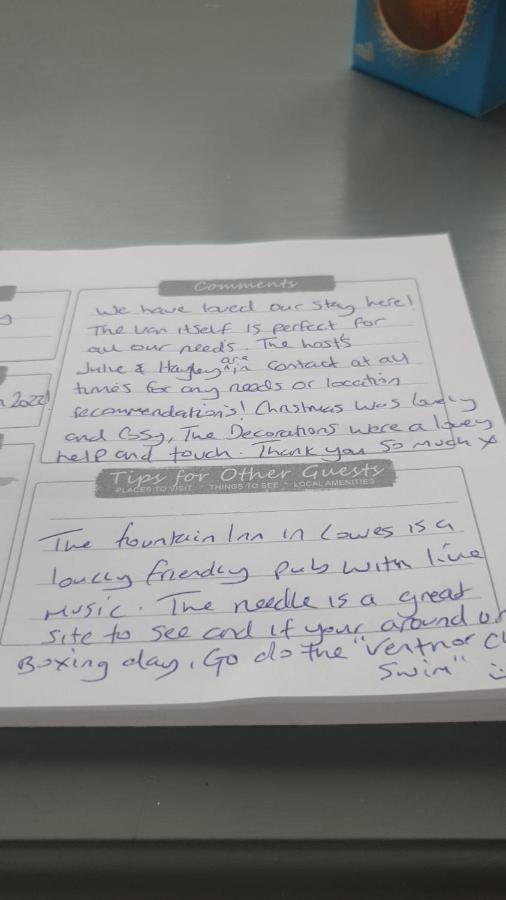 Comments
We have loved our stay here!
The van itself is perfect for
all our needs. The hosts
Julie & Hayley are in contact at all
times for any needs or location
recommendations! Christmas was lovely
and cosy, The Decorations were a lovey
help and touch. Thank you so much x
2022!
Tips for Other Guests
PLACES TO VISIT * THINGS TO SEE * LOCAL AMENITIES
The fountain Inn in Cowes is a
lovely friendly pub with live
music. The needle is a great
site to see and if your around on
Boxing day, Go do the "Ventnor
Swim"